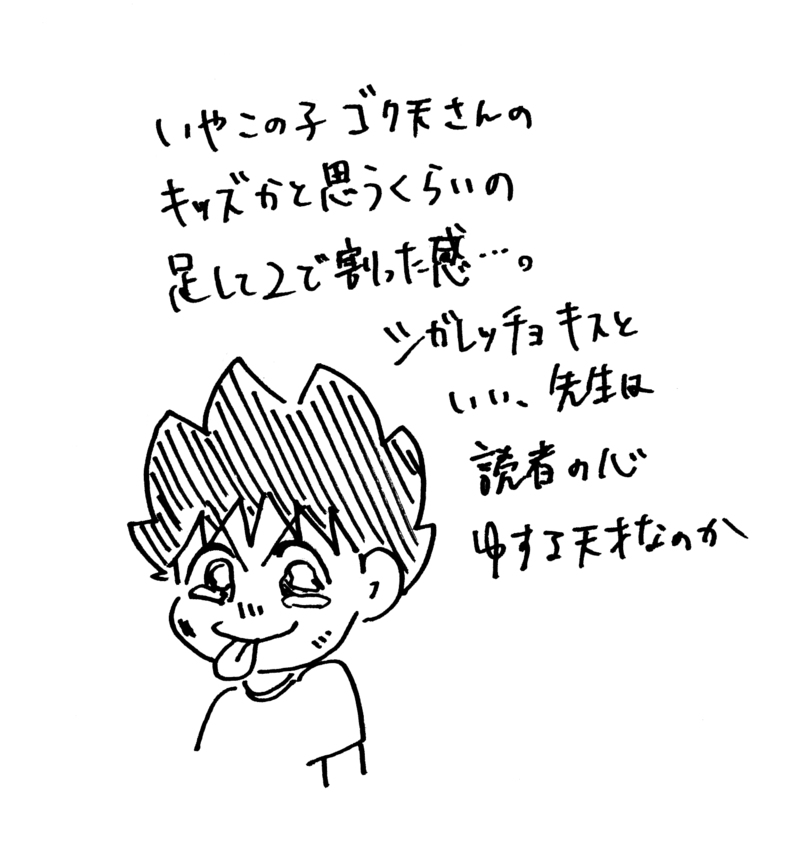 いやこの子 ゴク天さんの
キッズかと思うくらいの
足して2で割った感…。
シガレッチョキスと
いい、先生は
読者の心
ゆする天才なのか